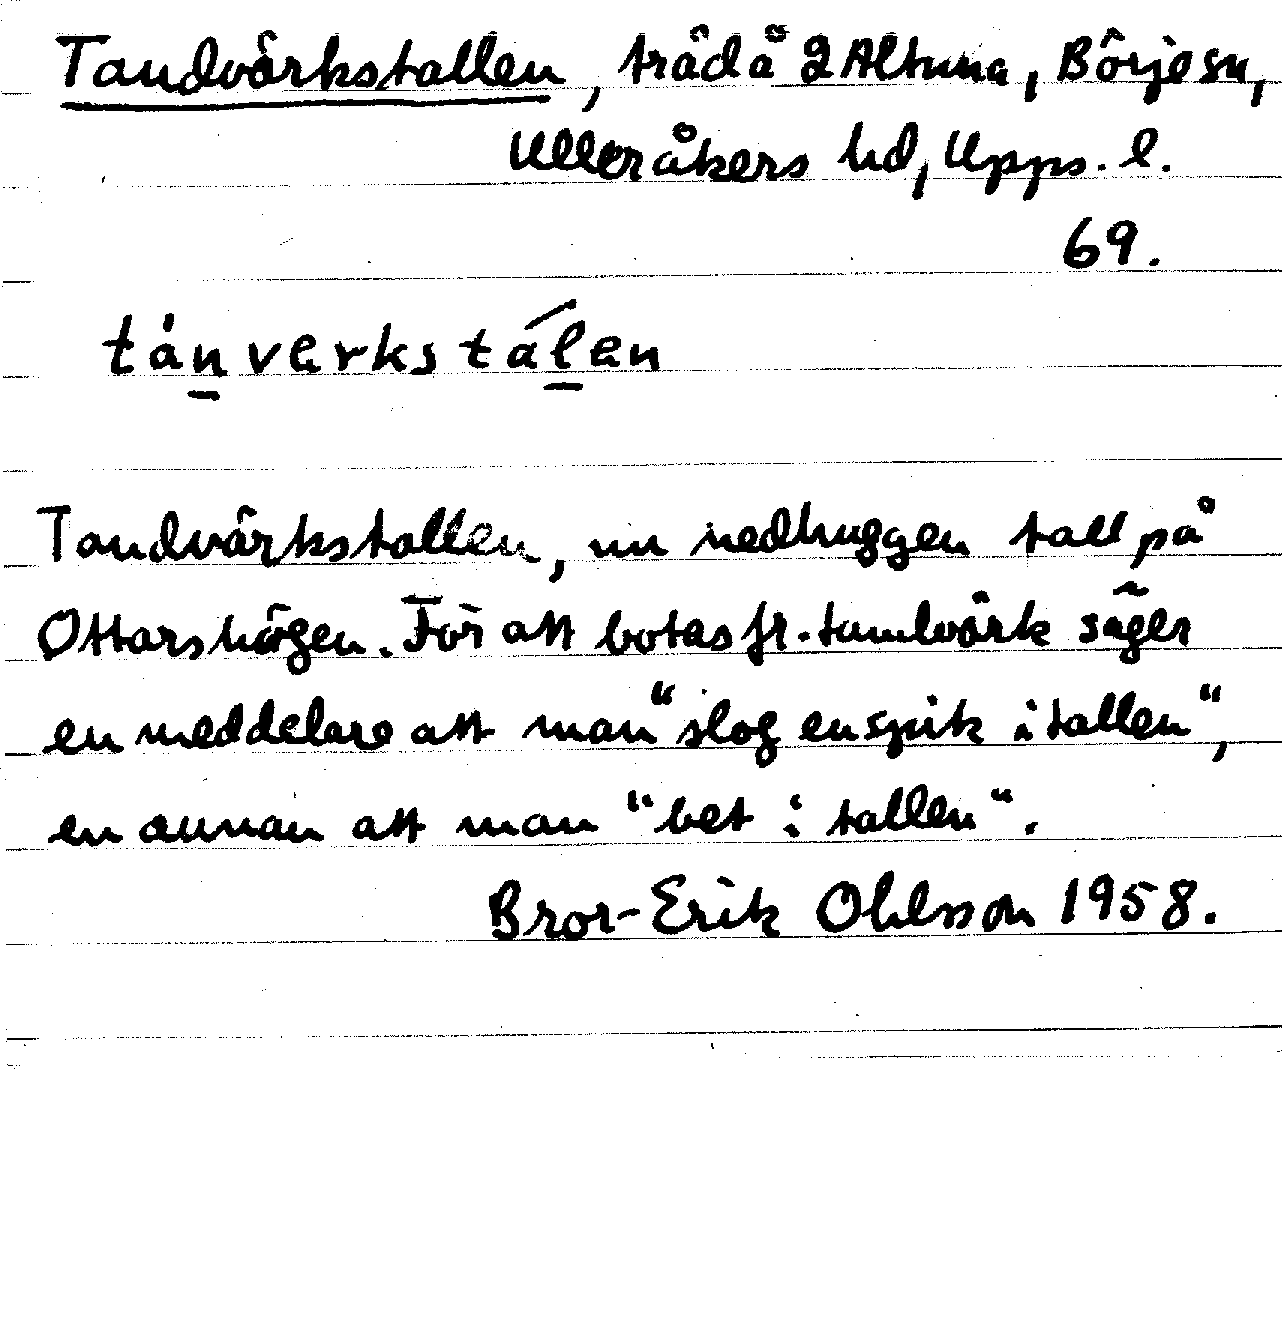 Tandvärkstallen, träd å 2 Altuna, Börje sn,
Ulleråkers hd, Upps. l.
69.
tánverkstálen
Tandvärkstallen, nu nedhuggen tall på
Ottarshögen. För att botas fr. tandvärk säger
en meddelare att man "slog en spik i tallen",
en annan att man "bet i tallen".
Bror-Erik Ohlsson 1958.